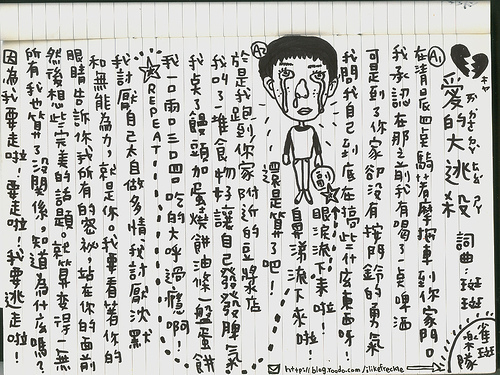 愛的大逃殺
詞曲:斑斑
A1
在清晨四點騎著摩托車到你家門口
我承認在那之前我有喝了一點啤酒
可是到了你家卻沒有按門鈴的勇氣
我問我自己到底在搞些什麼東西呀!
眼淚流下來啦!
鼻涕流下來啦!
還是算了吧!
A2
於是跑到你家附近的豆漿店
我叫了一堆食物好讓自己發發脾氣
我點了饅頭加蛋燒餅油條一盤蛋餅
我一口兩口三口四口吃的大呼過癮啊!
REPEAT
我討厭自己太自做多情我討厭沈默
和無能為力,就是你。我要看著你的
眼睛告訴你我所有的秘密,站在你的面前
然後想些完美的話題。就算變得一無
所有我也算了沒關係,知道為什麼嗎?
因為我要走啦!要走啦!我要逃走啦!
雀斑
樂隊
http://blog.roodo.com/ilikefreckle